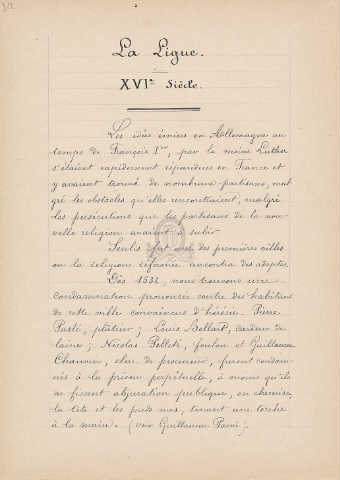 La Ligue.
XVIe Siècle.
Les idées émises en Allemagne au
temps de François Ier, par le moine Luther
s'étaient rapidement répandues en France et
y avaient trouvé de nombreux partisans, mal
gré les obstacles qu'elles rencontraient, malgré
les persécutions que les partisans de la nou-
velle religion avaient à subir.
Senlis fut une des premières villes
où la religion réformée rencontra des adeptes.
Dès 1532, nous trouvons une
condamnation prononcée contre des habitants
de cette ville convaincus d'hérésie. Pierre
plâtrier ; Louis cardeur de
laines ; Nicolas foulon et Guillaume
clerc de procureur, furent condam-
nés à la prison perpétuelle, à moins qu'ils
ne fissent abjuration publique, en chemise,
la tête et les pieds nus, tenant une torche
à la main. (voir Guillaume